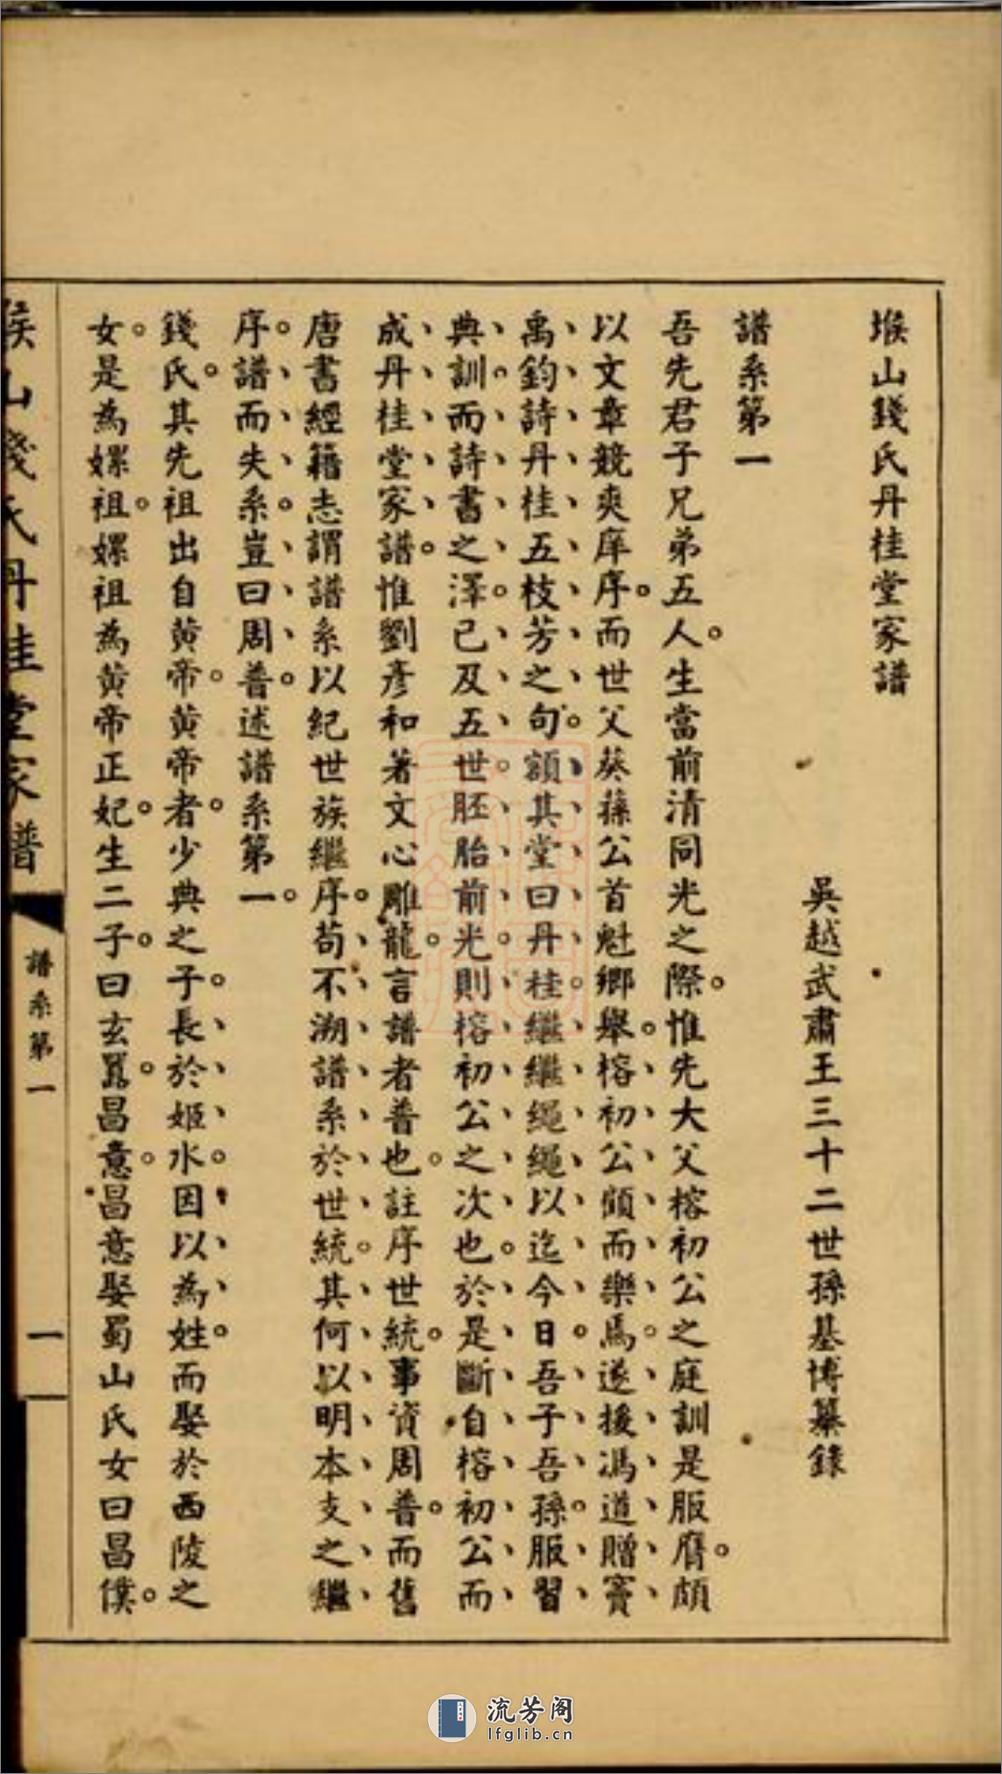 堠山錢氏丹桂堂家譜
吳越武肅王三十二世孫基博纂錄
譜系第一
吾先君子兄弟五人。生當前清同光之際。惟先大父榕初公之庭訓是服膺。頗
以文章競爽庠序。而世父葵蓀公首魁鄉舉。榕初公顧而樂焉。遂援馮道贈竇
禹鈞詩丹桂五枝芳之句。額其堂曰丹桂。繼繼繩繩以迄今日。吾子吾孫。服習
典訓。而詩書之澤。已及五世。胚胎前光。則榕初公之次也。於是斷自榕初公而
成丹桂堂家譜。惟劉彥和著文心雕龍。言譜者普也。註序世統。事資周普。而舊
唐書經籍志謂譜系以紀世族繼序。苟不溯譜系於世統。其何以明本支之繼
序。譜而失系。豈曰周普。述譜系第一。
錢氏。其先祖出自黃帝。黃帝者。少典之子。長於姬水。因以為姓。而娶於西陵之
女。是為嫘祖。嫘祖為黃帝正妃。生二子。曰玄囂。昌意。昌意娶蜀山氏女曰昌僕。
堠山錢氏丹桂堂家譜
譜系第一
一
流芳阁
lfglib.cn